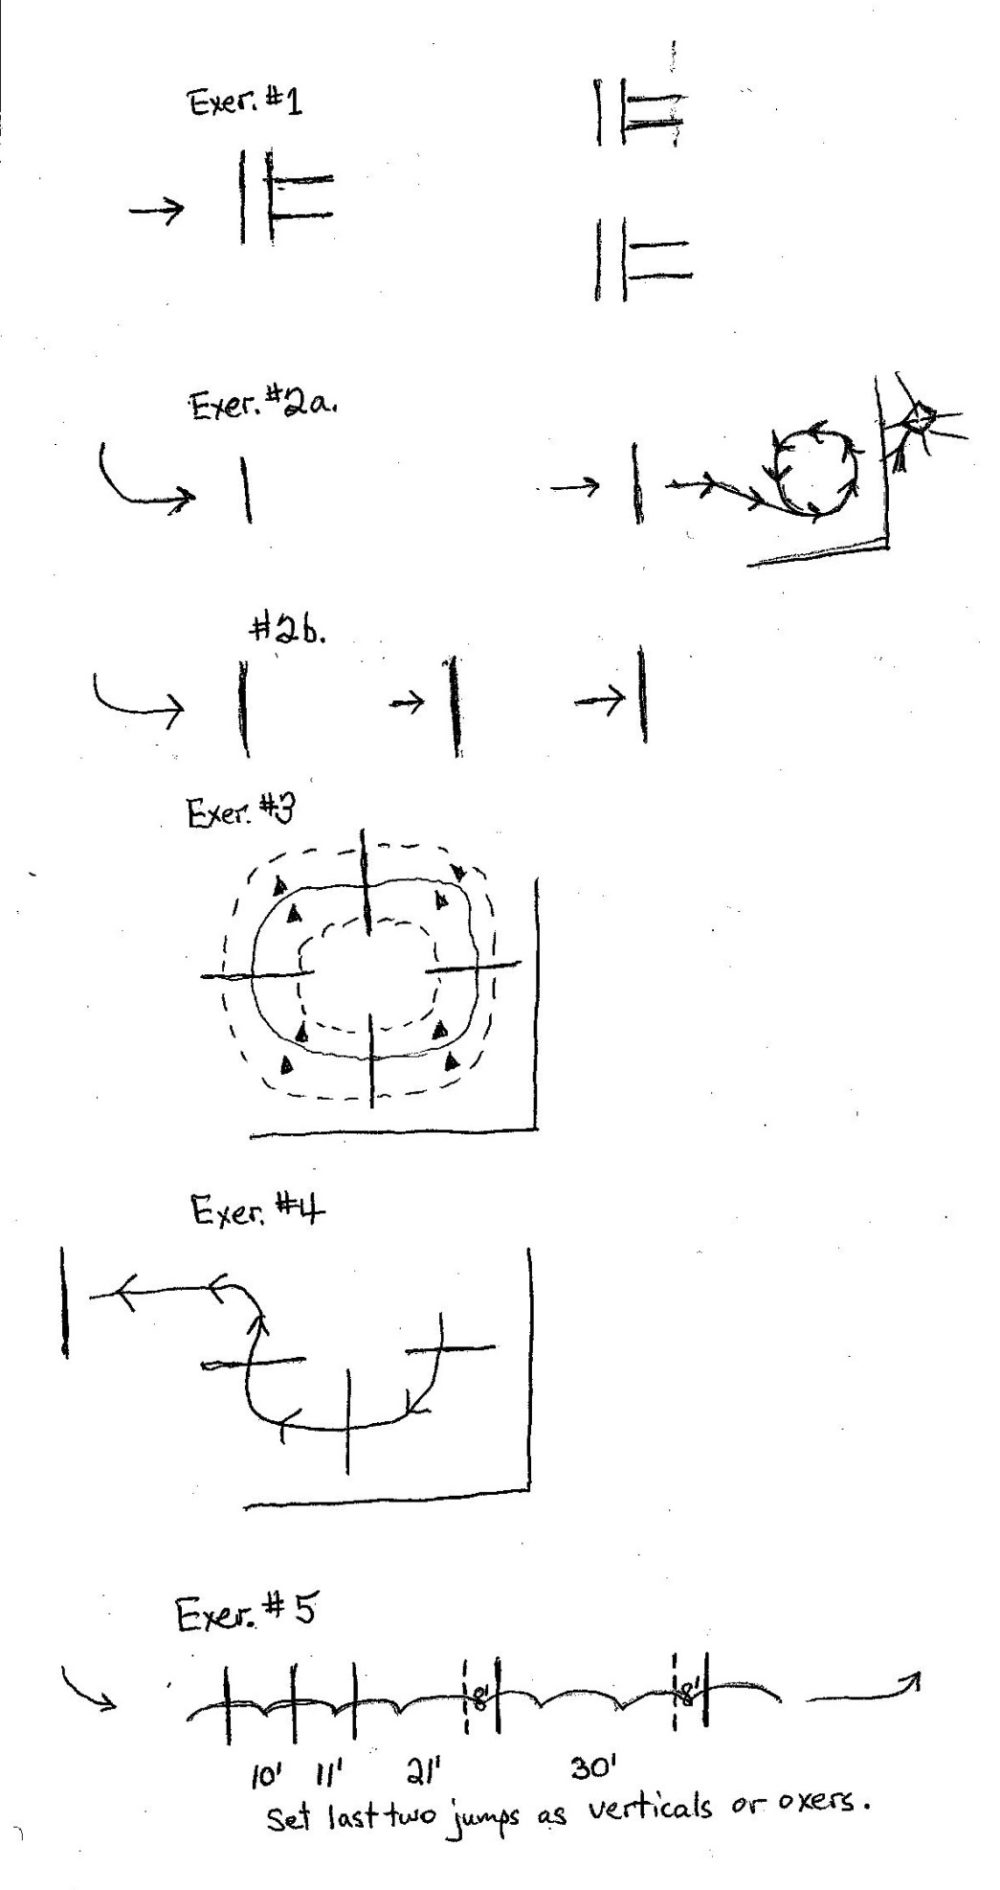 Exer. #1
Exer. #2a.
#2b.
Exer. #3
Exer. #4
Exer. #5
8' 8'
10' 11' 21' 30'
Set last two jumps as verticals or oxers.